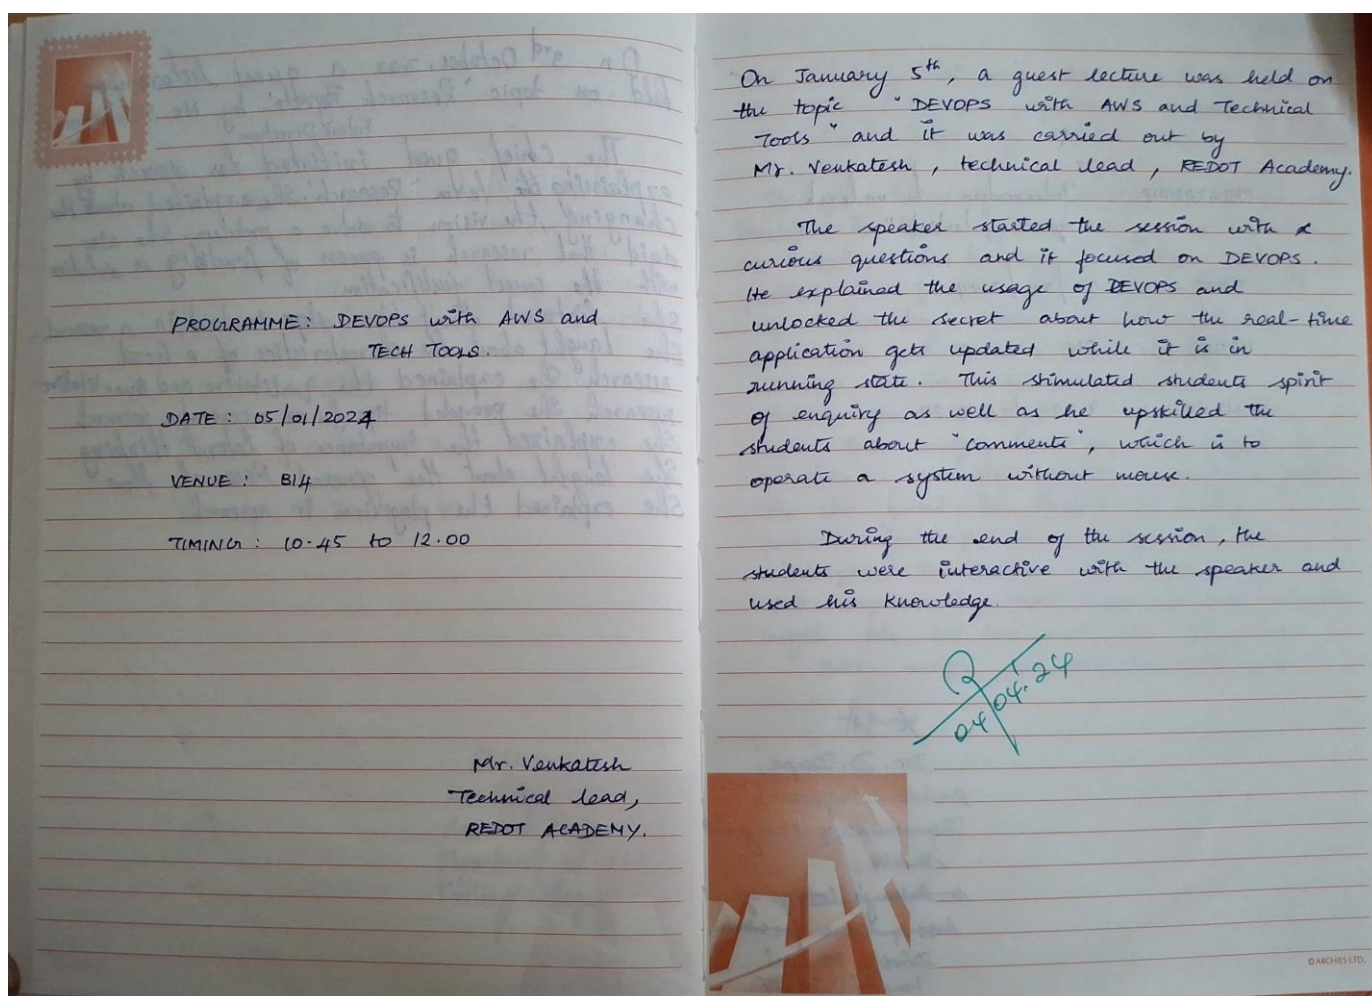 PROGRAMME: DEVOPS with AWS and
TECH TOOLS.
DATE: 05/01/2024
VENUE: B14
TIMING: 10.45 to 12.00
Mr. Venkatesh
Technical lead,
REDOT ACADEMY.
On January 5th, a guest lecture was held on
the topic "DEVOPS with AWS and Technical
Tools" and it was carried out by
Mr. Venkatesh, technical lead, REDOT Academy.
The speaker started the session with
curious questions and it focused on DEVOPS.
He explained the usage of DEVOPS and
unlocked the secret about how the real-time
application gets updated while it is in
running state. This stimulated students spirit
of enquiry as well as he upskilled the
students about "comments", which is to
operate a system without mouse.
During the end of the session, the
students were interactive with the speaker and
used his knowledge.
04/04.24
© ARCHIES LTD.